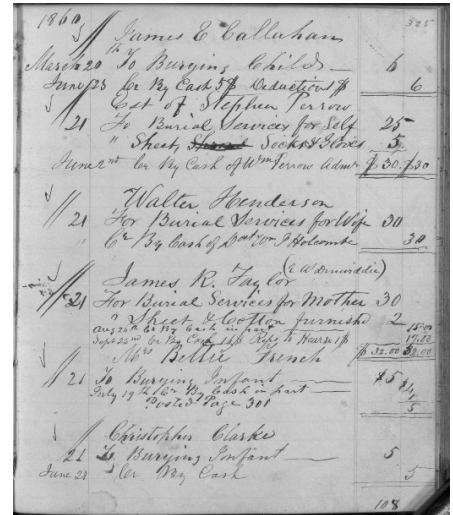 1860 325
James E Callaham
March 20th To Burying Child 6
June 23 Cr By Cash 5$ Deduction 1$ 6
Est of Stephen Perrow
21 To Burial Services for Self 25
" Sheet, Socks & Gloves 5
June 2nd Cr By Cash of Wm Perrow Admr $30. $30
Walter Henderson
21 For Burial Services for Wife 30
" Cr By Cash of Wm J Holcombe 30
James R. Taylor (E W Dinwiddie)
21 For Burial Services for Mother 30
" Sheet & Cotton furnished 2
Aug 25th Cr By Cash in part 15.00
Sept 22nd Cr By Cash 16$ Repg to Hearse 1$ 17.00
$32.00 32.00
Mrs Bettie French
21 To Burying Infant $5
July 19th Cr By Cash in part
Posted Page 301 5
Christopher Clarke
21 To Burying Infant 5
June 23 Cr By Cash 5
108